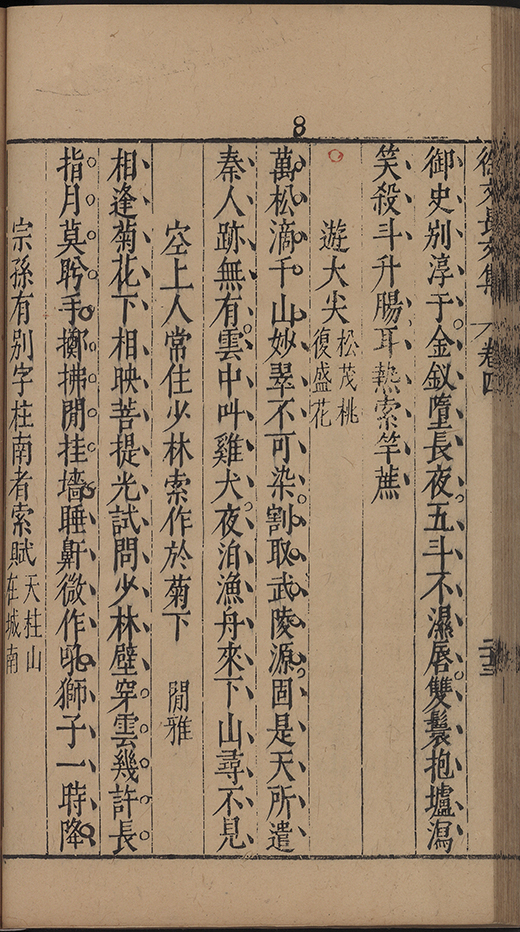 8
徐文長文集
卷四
二十三
御史别淳于金釵墮長夜五斗不濕唇雙鬟抱壚瀉
笑殺斗升腸耳熱索竿蔗
遊大尖 松茂桃
復盛花
萬松滴千山妙翠不可染割取武陵源固是天所遣
秦人跡無有雲中呌雞犬夜泊漁舟來下山尋不見
空上人常住少林索作於菊下 閒雅
相逢菊花下相映菩提光試問少林壁穿雲幾許長
指月莫肹手擲拂閒挂墻睡鼾微作吼獅子一時降
宗孫有别字柱南者索賦 天柱山
在城南